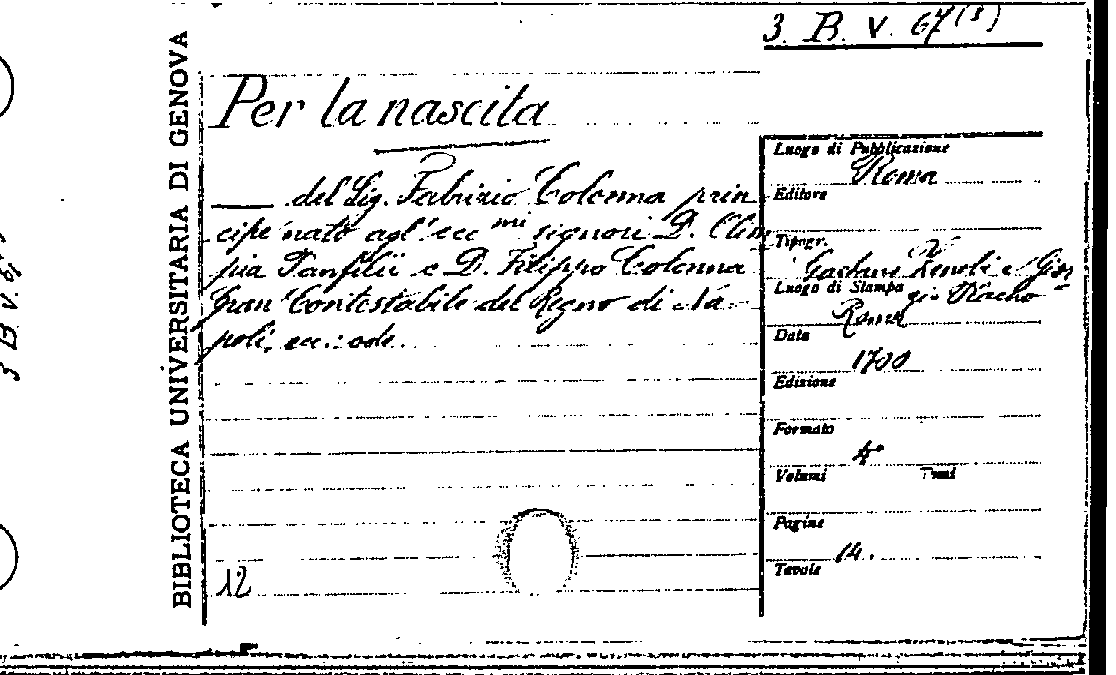 3. B. V. 67 (8)
BIBLIOTECA UNIVERSITARIA DI GENOVA
3 B V. 67
Per la nascita
del Sig. Fabrizio Colonna prin
cipe nato agl' ecc.mi signori D. Olim
pia Panfilii e D. Filippo Colonna
gran Contestabile del Regno di Na-
poli, ecc.: ode.
12
Luogo di Pubblicazione
Roma
Editore
Tipogr.
Gaetano Zenobi e Gior
gio Placho
Luogo di Stampa
Roma
Data
1700
Edizione
Formato
4°
Volumi Tomi
Pagine
14.
Tavole